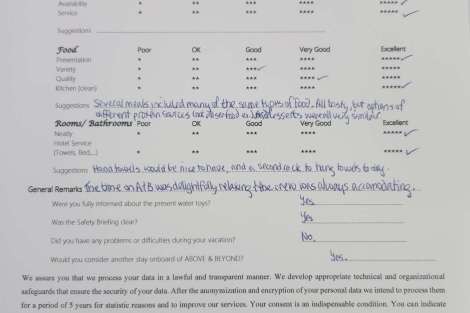 Availability * ** *** **** *****
Service * ** *** **** *****
Suggestions
Food Poor OK Good Very Good Excellent
Presentation * ** *** **** *****
Variety * ** *** **** *****
Quality * ** *** **** *****
Kitchen (clean) * ** *** **** *****
Suggestions Several meals included many of the same types of food. All tasty, but options of
different protein sources
desserts were all very similar
Rooms/ Bathrooms Poor OK Good Very Good Excellent
Neatly * ** *** **** *****
Hotel Service
(Towels, Bed,...) * ** *** **** *****
Suggestions Hand towels would be nice to have, and a second rack to hang towels to dry.
General Remarks The time on A+B was delightfully relaxing & the crew was always accomodating.
Were you fully informed about the present water toys? Yes
Was the Safety Briefing clear? Yes
Did you have any problems or difficulties during your vacation? No.
Would you consider another stay onboard of ABOVE & BEYOND? Yes.
We assure you that we process your data in a lawful and transparent manner. We develop appropriate technical and organizational
safeguards that ensure the security of your data. After the anonymization and encryption of your personal data we intend to process them
for a period of 5 years for statistic reasons and to improve our services. Your consent is an indispensable condition. You can indicate